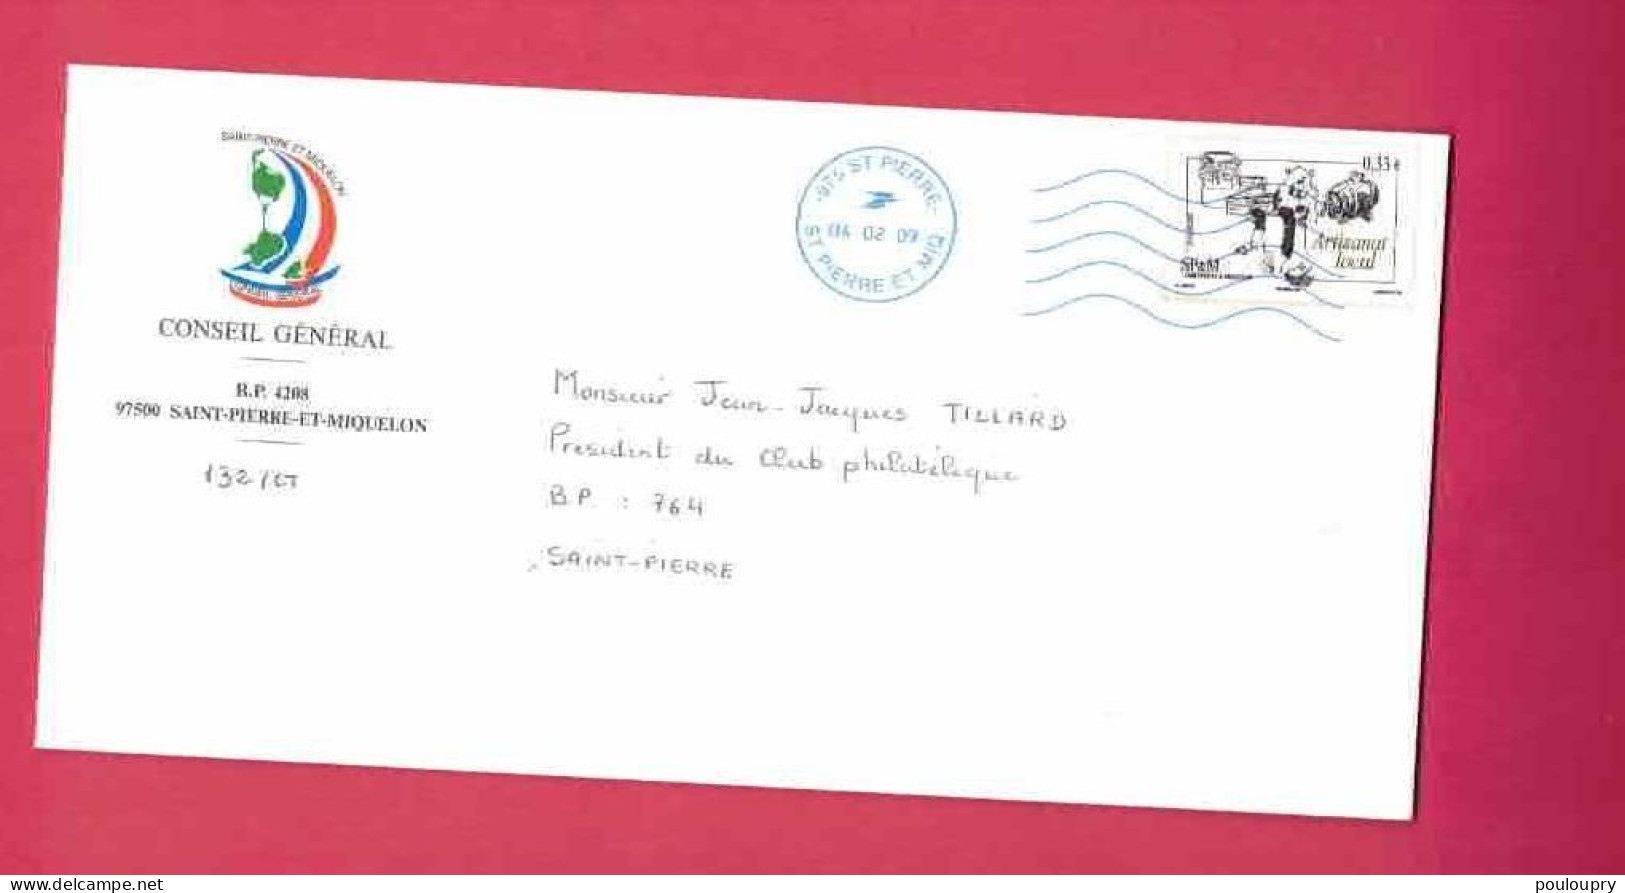 SAINT-PIERRE ET MIQUELON
CONSEIL GÉNÉRAL
B.P. 4208
97500 SAINT-PIERRE-ET-MIQUELON
132/CT
975 ST PIERRE
04 02 09
ST PIERRE ET MIQ
0,33 €
Artisanat
local
SP&M
Monsieur Jean-Jacques TILLARD
President du Club philatélique
B.P. : 764
SAINT-PIERRE
delcampe.net
pouloupry